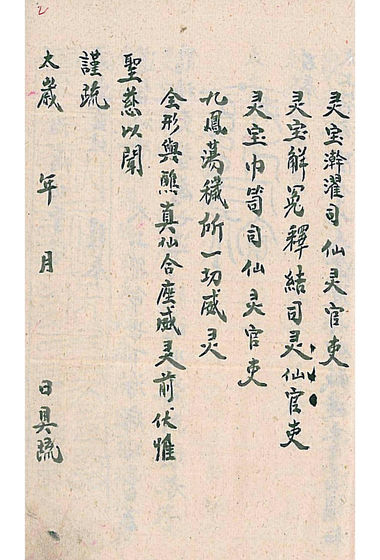 灵宝澣濯司仙灵官吏
灵宝解冤釋結司灵仙官吏
灵宝巾笥司仙灵官吏
九鳳蕩穢所一切威灵
全形與醮真仙合座威灵前伏惟
聖慈以聞
謹疏
太歲 年 月 日具疏
2